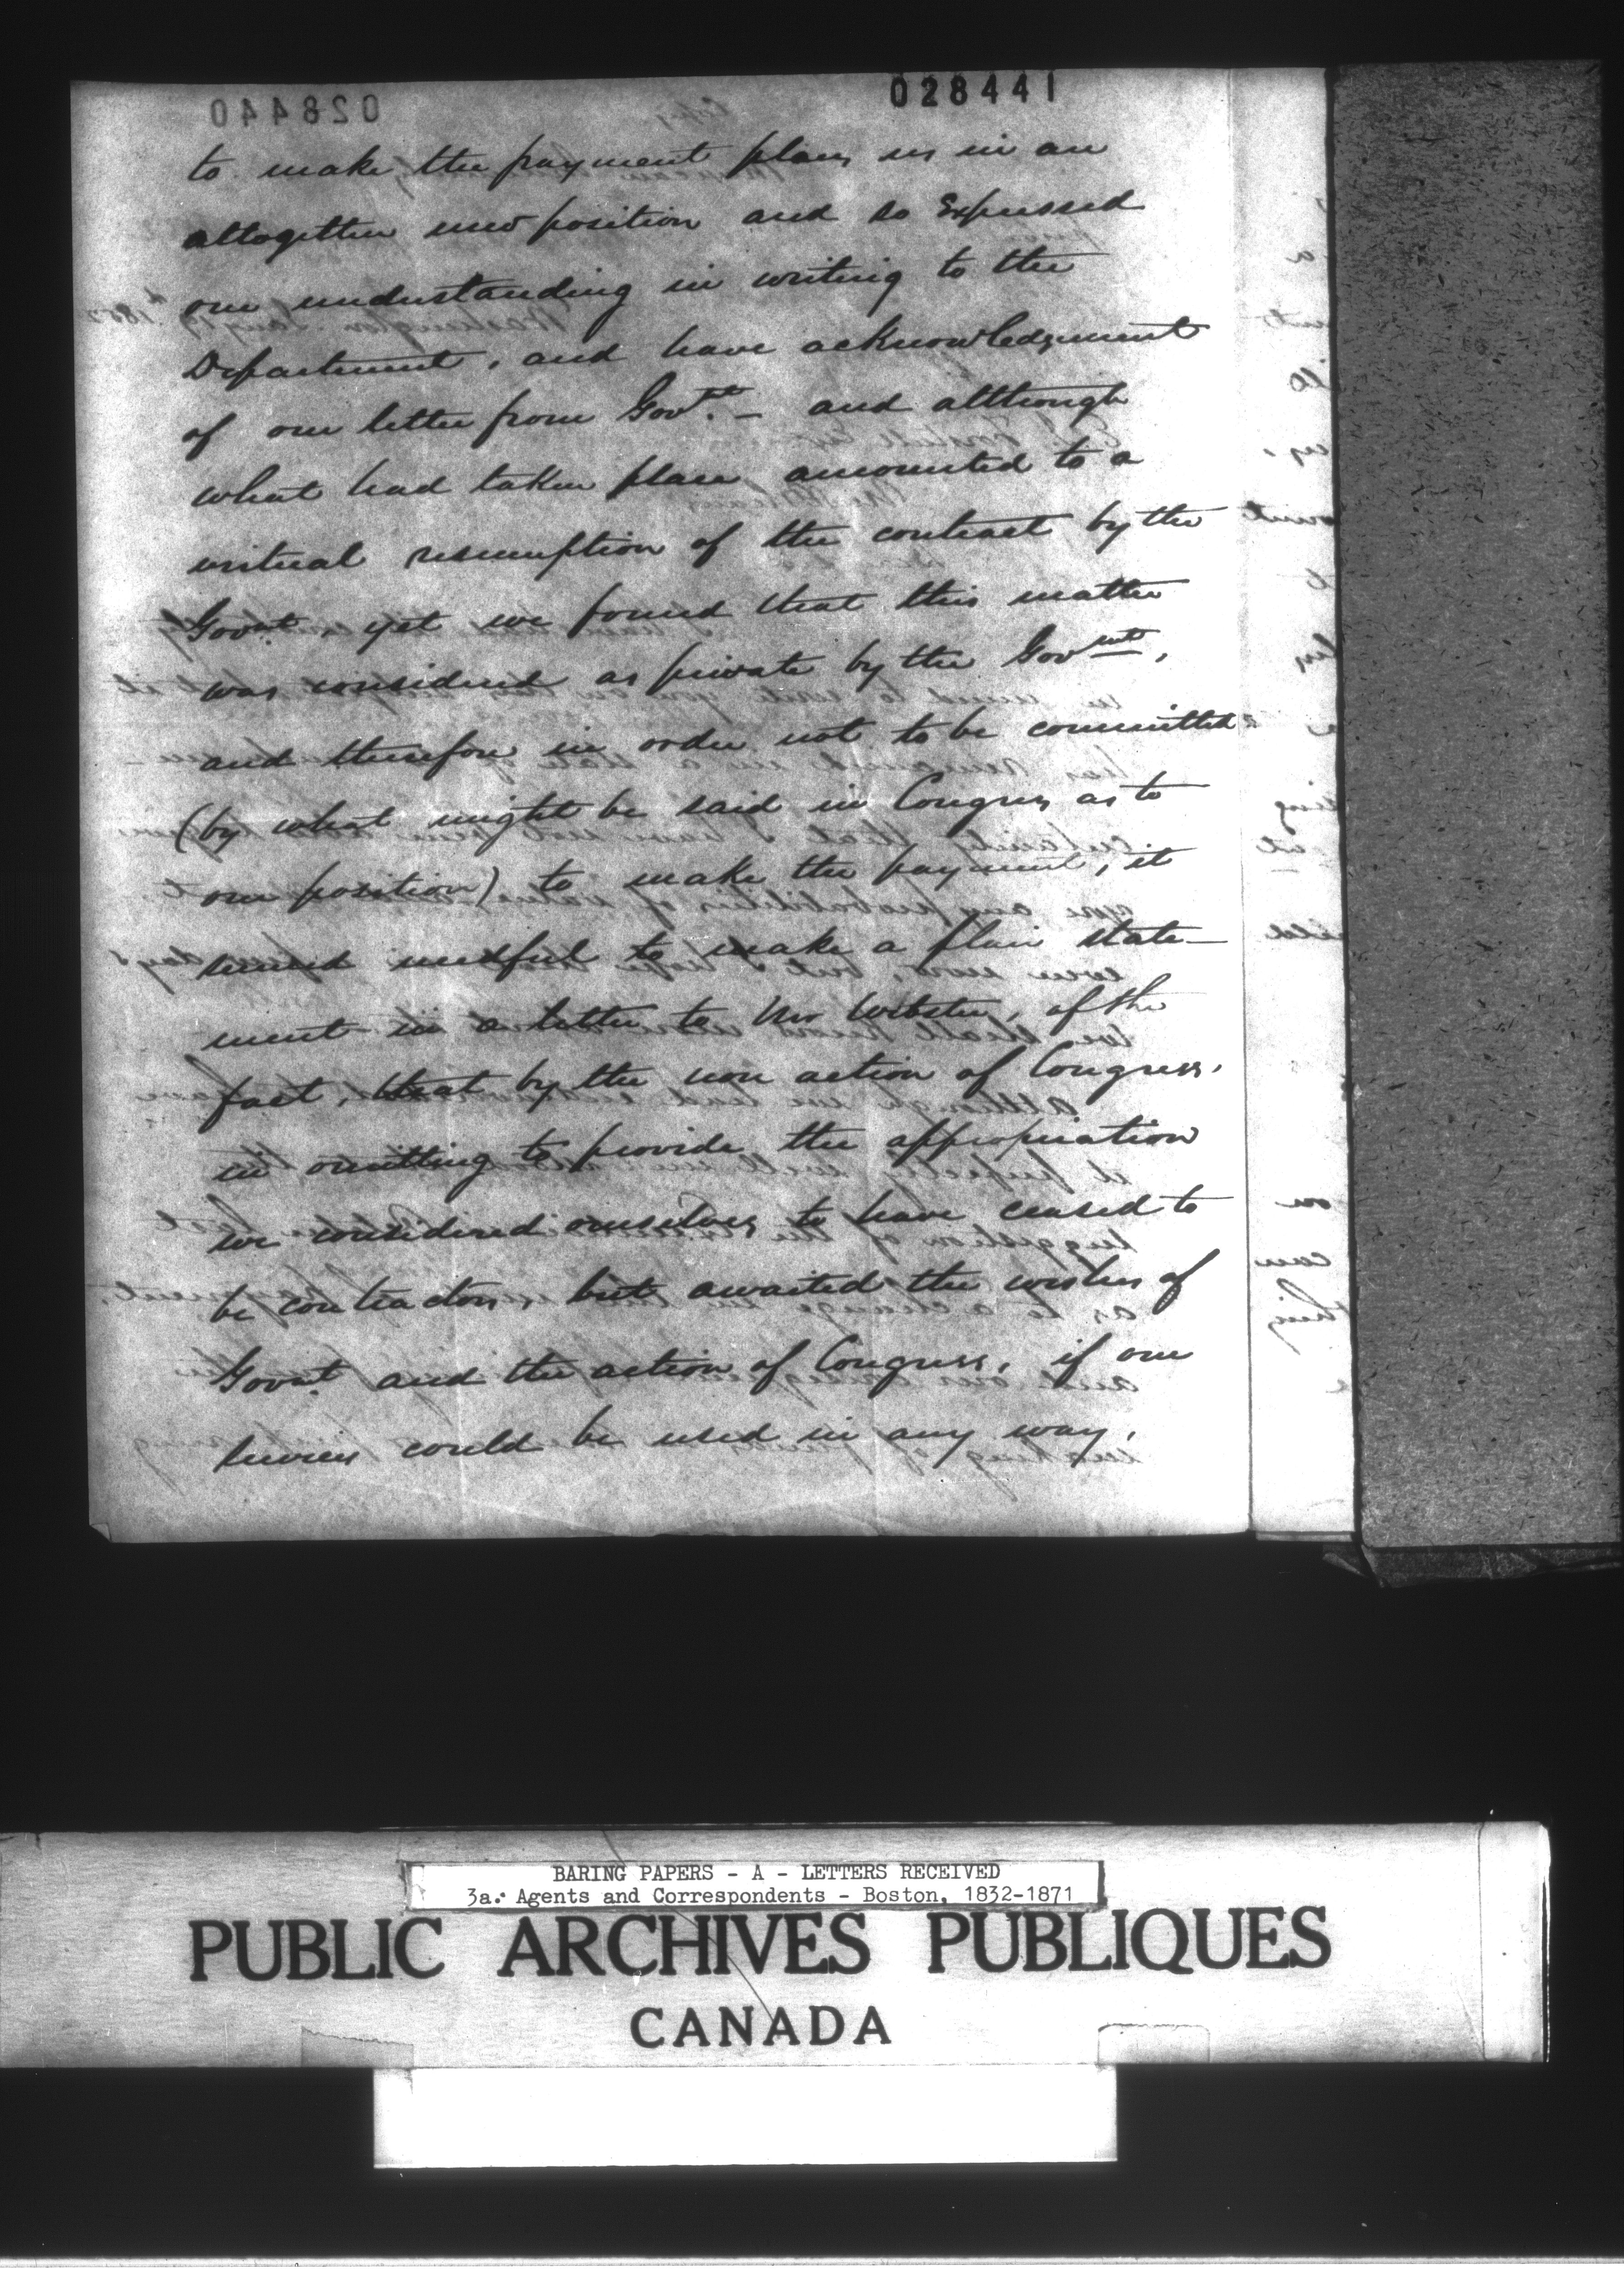 028441
to make the payment places us in an
altogether new position and so Expressed
our understanding in writing to the
Department, and have acknowledgement
of our letter from Govt. – and although
what had taken place amounted to a
virtual resumption of the contract by the
Govnt. yet we found that this matter
was considered as private by the Govmt,
and therefore in order not to be committed
(by what might be said in Congress as to
our position) to make the payment, it
seemed needful to make a plain state–
ment in a letter to Mr Webster, of the
fact, that by the non action of Congress.
in omitting to provide the appropriation
we considered ourselves to have ceased to
be contractors, but awaited the wishes of
Govnt. and the action of Congress, if our
services could be used in any way.
BARING PAPERS - A - LETTERS RECEIVED
3a. Agents and Correspondents - Boston, 1832-1871
PUBLIC ARCHIVES PUBLIQUES
CANADA